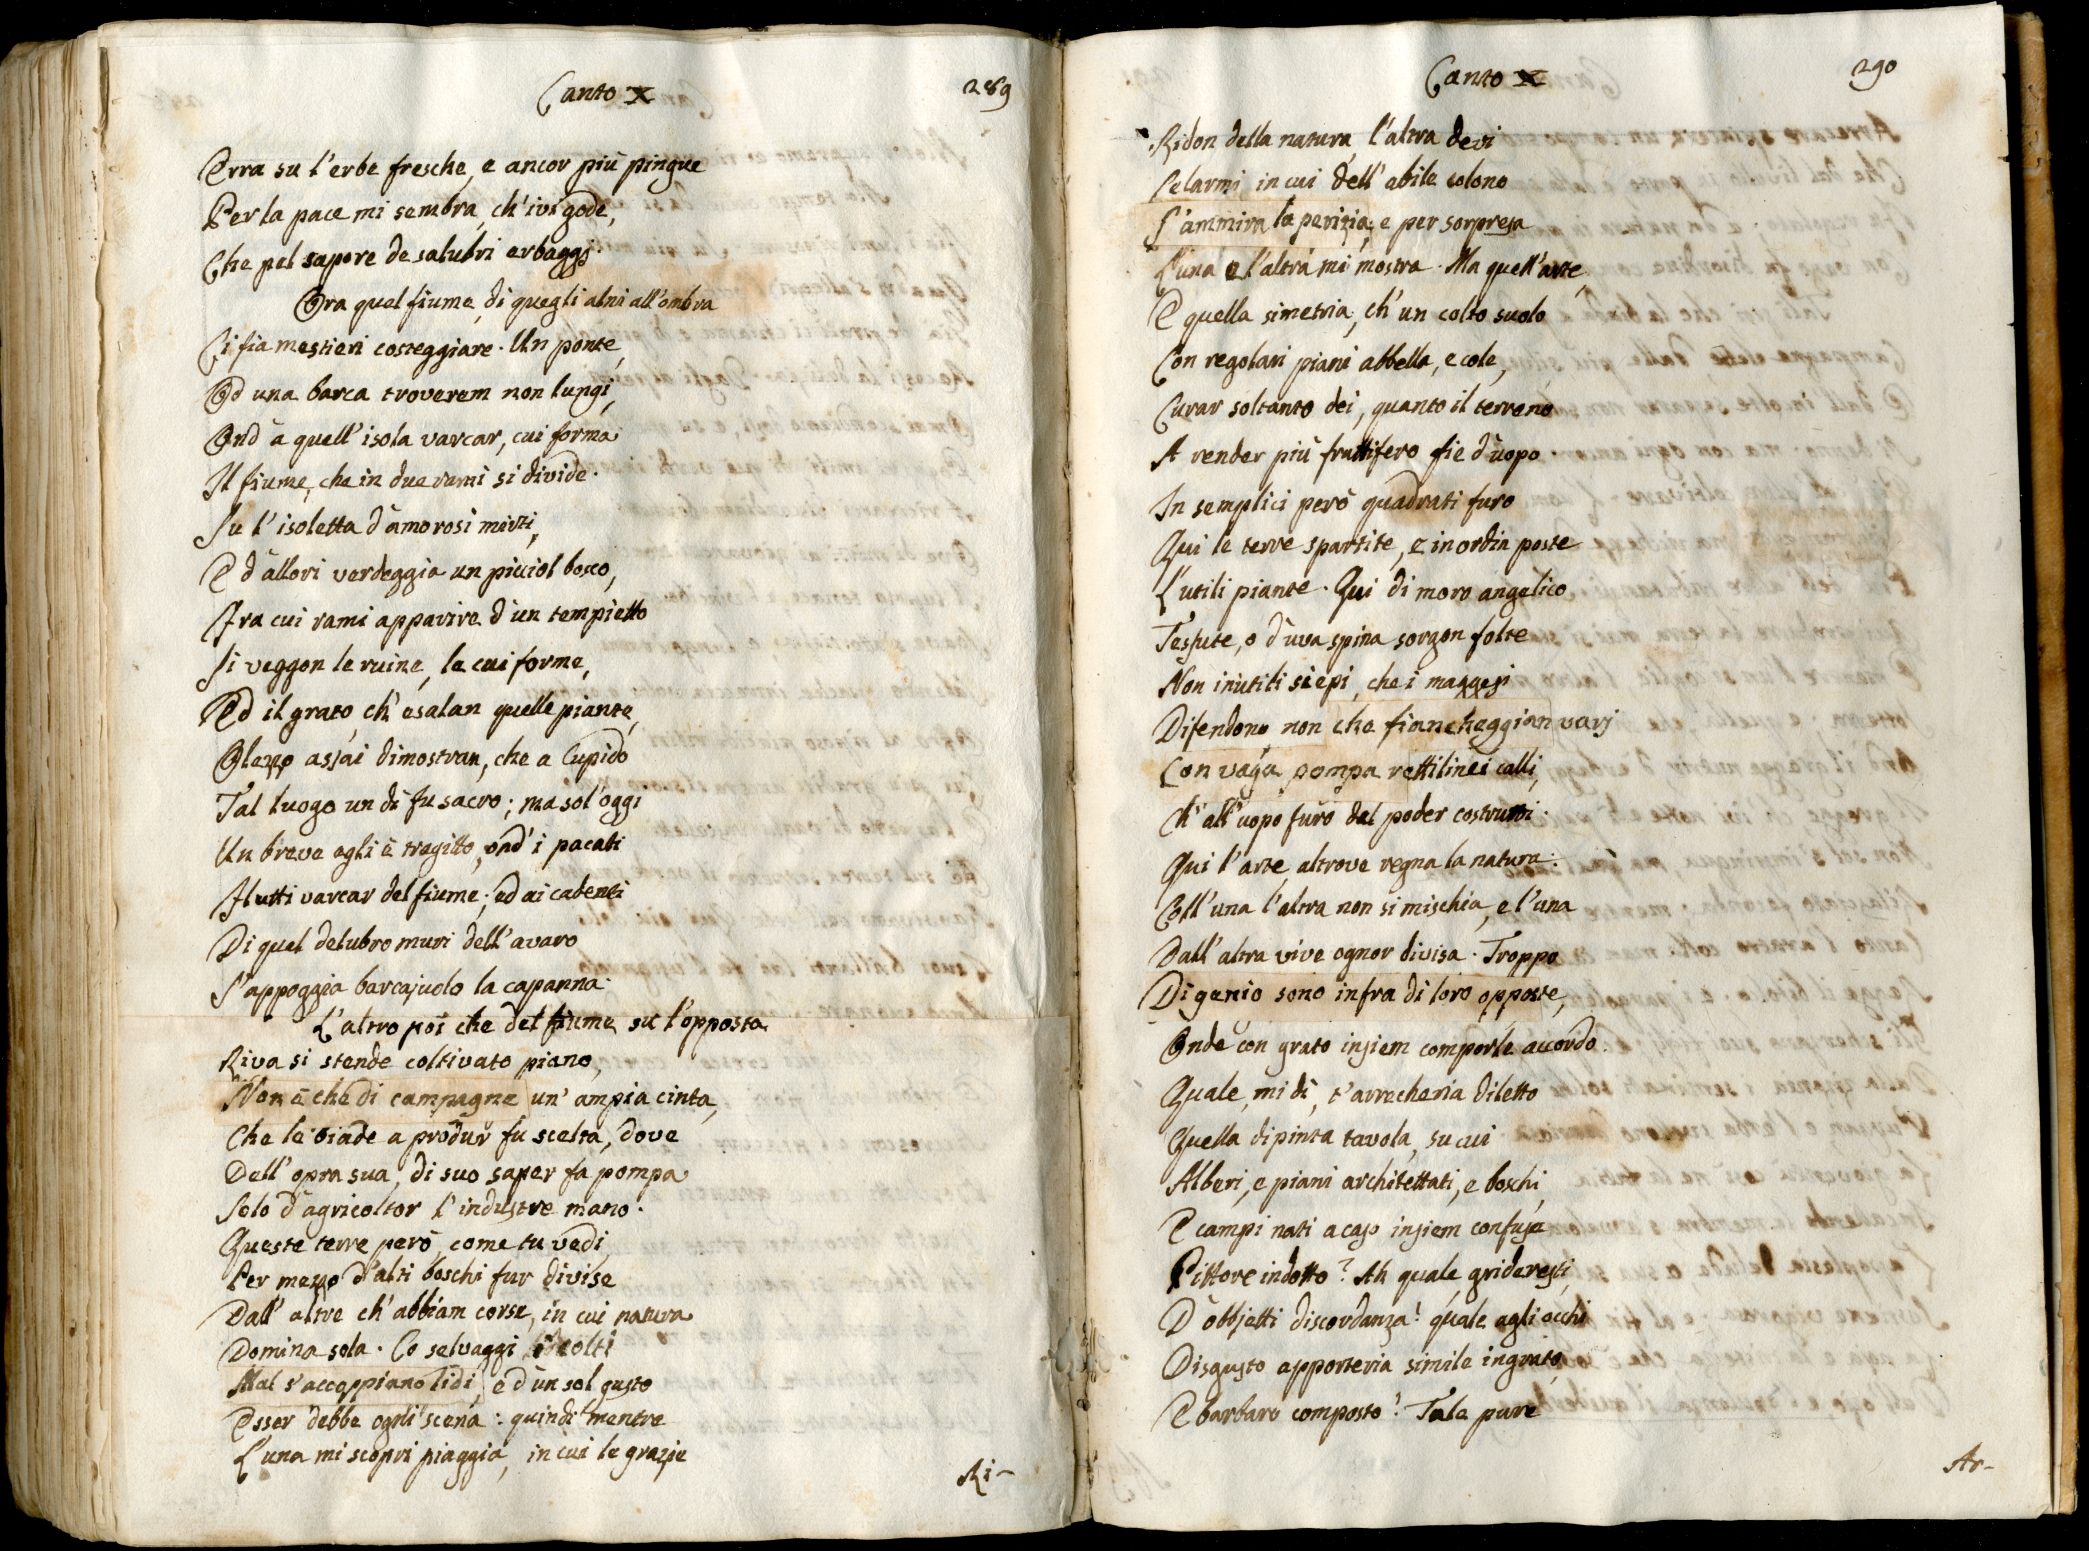 Canto X
289
Erra su l'erbe fresche, e ancor più pingue
Per la pace mi sembra, ch'ivi gode,
Che pel sapore de salubri erbaggj.
Ora quel fiume, di quegli alni all'ombra
Ci fia mestieri costeggiare. Un ponte,
Od una barca troverem non lungi,
Ond' a quell'isola varcar, cui forma
Il fiume, che in due rami si divide.
Su l'isoletta d'amorosi mirti,
E d'allori verdeggia un picciol bosco,
Fra cui rami apparire d'un tempietto
Si veggon le ruine, le cui forme,
Ed il grato, ch'esalan quelle piante,
Olezzo assai dimostran, che a Cupido
Tal luogo un dì fu sacro; ma sol'oggi
Un breve egli è tragitto, ond'i pacati
Flutti varcar del fiume; ed ai cadenti
Di quel delubro muri dell'avaro
S'appoggia barcajuolo la capanna.
L'altro poi che del fiume su l'opposta
Riva si stende coltivato piano,
Non è che di campagne un'ampia cinta,
Che le biade a produr fu scelta, dove
Dell'opra sua, di suo saper fa pompa
Solo d'agricoltor l'industre mano.
Queste terre però, come tu vedi,
Per mezzo d'alti boschi fur divise
Dall'altre ch'abbiam corse, in cui natura
Domina sola. Co selvaggi i colti
Mal s'accoppiano lidi, e d'un sol gusto
Esser debbe ogni scena: quindi mentre
L'una mi scopri piaggia, in cui le grazie
Ri-
Canto X
290
Ridon della natura, l'altra dei
Celarmi in cui dell'abile colono
S'ammira la perizia, e per sorpresa
L'una e l'altra mi mostra. Ma quell'arte,
E quella simetria, ch'un colto suolo
Con regolari piani abbella, e cole,
Curar soltanto dei, quanto il terreno
A render più fruttifero fie d'uopo.
In semplici però quadrati furo
Qui le terre spartite, e in ordin poste
L'utili piante. Qui di moro angelico
Tessute, o d'uva spina sorgon folte
Non inutili siepi, che i maggesi
Difendono non che fiancheggian varj
Con vaga pompa rettilinei calli,
Ch'all'uopo furo del poder costrutti.
Qui l'arte, altrove regna la natura:
Coll'una l'altra non si mischia, e l'una
Dall'altra vive ognor divisa. Troppo
Di genio sono infra di loro opposte,
Onde con grato insiem comporle accordo.
Quale, mi dì, t'arrecheria diletto
Quella dipinta tavola, su cui
Alberi, e piani architettati, e boschi,
E campi nati a caso insiem confuse
Pittore indotto? Ah quale, grideresti,
D'obbjetti discordanza! quale agli occhi
Disgusto apporteria simile ingrato,
E barbaro composto! Tale pure
Ar-